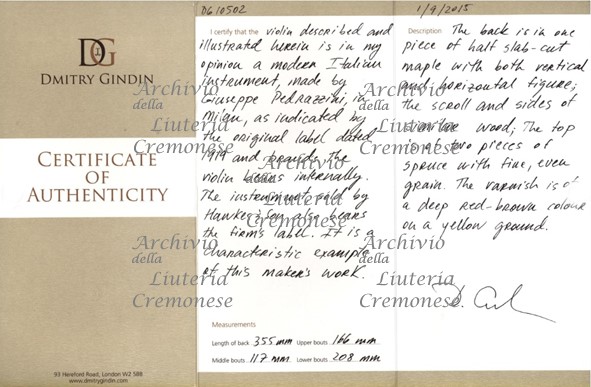 DG
DMITRY GINDIN
CERTIFICATE
OF
AUTHENTICITY
93 Hereford Road, London W2 5BB
www.dmitrygindin.com
DG10502
I certify that the violin described and
illustrated herein is in my
opinion a modern Italian
instrument, made by
Giuseppe Pedrazzini, in
Milan, as indicated by
the original label dated
1919 and brands the
violin bears internally.
The instrument sold by
Hawkes & Son also bears
the firm's label. It is a
characteristic example
of this maker's work.
Measurements
Length of back 355 mm Upper bouts 166 mm
Middle bouts 117 mm Lower bouts 208 mm
1/9/2015
Description The back is in one
piece of half slab-cut
maple with both vertical
and horizontal figure;
the scroll and sides of
similar wood; The top
is of two pieces of
spruce with fine, even
grain. The varnish is of
a deep red-brown colour
on a yellow ground.
Archivio
della
Liuteria
Cremonese
Archivio
della
Liuteria
Cremonese
Archivio
della
Liuteria
Cremonese
Archivio
della
Liuteria
Cremonese
Archivio
della
Liuteria
Cremonese